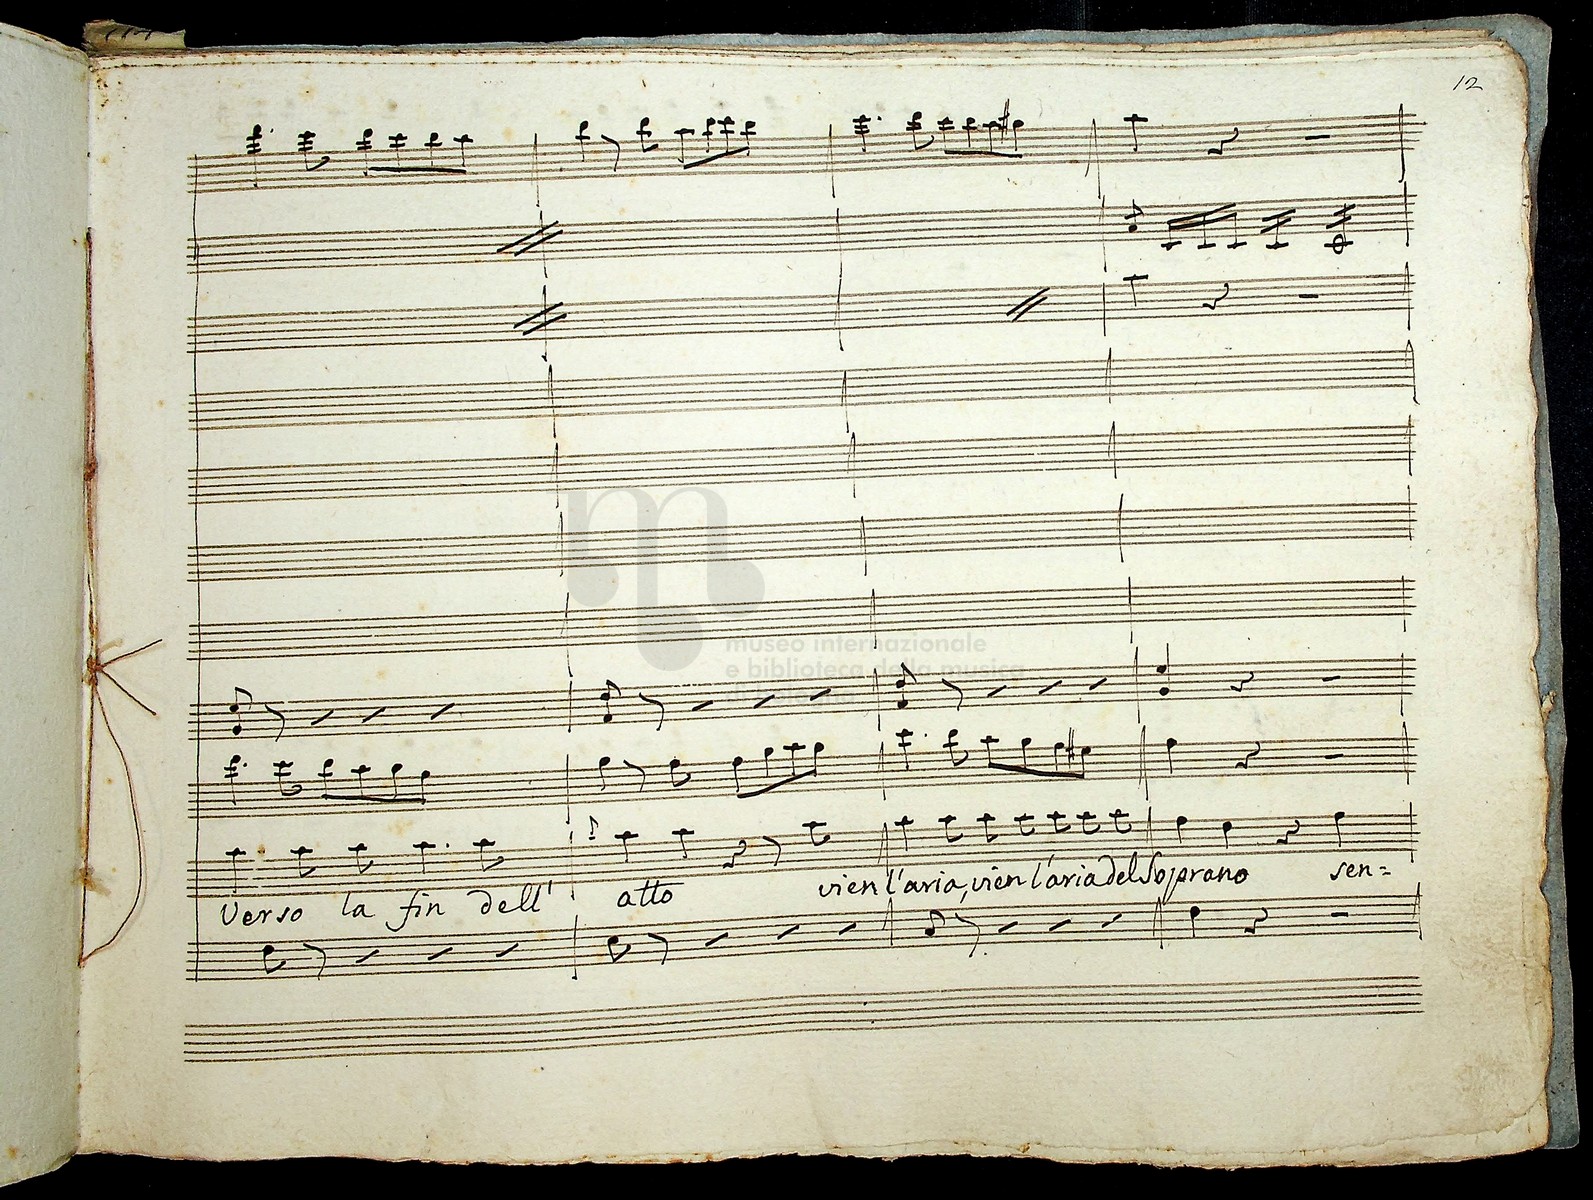 12
museo internazionale
e biblioteca della musica
di bologna
Verso la fin dell' atto vien l'aria, vien l'aria del Soprano sen=